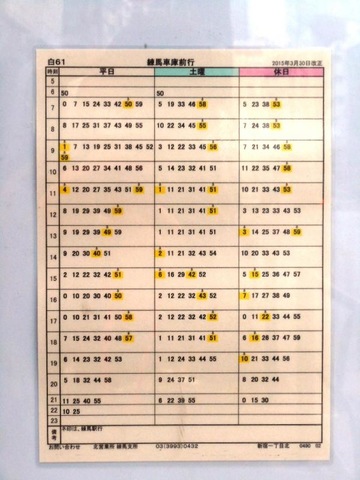 白61 練馬車庫前行 2015年3月30日改正
時刻 平日 土曜 休日
5
6 50 50
7 0 7 15 24 33 42 50 59 5 19 33 46 58 5 23 38 53
8 8 17 25 31 37 43 49 55 10 22 34 45 55 7 24 38 53
9 1 7 13 19 25 31 38 45 52 3 12 22 33 45 56 7 21 34 46 58
59
10 6 13 20 27 34 41 48 56 5 14 23 32 41 51 11 22 35 47 58
11 4 12 20 27 35 43 51 59 1 11 21 31 51 10 21 33 43 53
12 8 19 29 39 49 59 1 11 21 31 41 51 3 12 23 33 43 53
13 9 19 29 39 49 59 1 11 21 31 41 51 3 14 25 37 48 59
14 9 20 30 40 51 2 11 21 31 41 51 10 20 33 43 53
15 2 12 22 32 42 51 6 16 29 42 52 5 15 25 36 47 57
16 0 10 20 30 40 50 2 12 22 32 43 52 7 17 27 38 49
17 0 10 21 31 50 58 2 12 22 32 42 52 0 11 22 33 44 55
18 7 15 24 31 37 48 57 1 11 21 31 41 51 6 16 26 37 47 59
19 6 14 23 32 42 53 1 12 24 33 44 55 10 21 33 44 56
20 5 18 32 44 58 9 24 37 51 8 20 32 44
21 11 25 40 55 6 22 39 55 0 15 30
22 10 25
23
備考 ネ印は、練馬駅行
お問い合わせ 北営業所 練馬支所 03(3993)0432 新宿一丁目北 0490 02